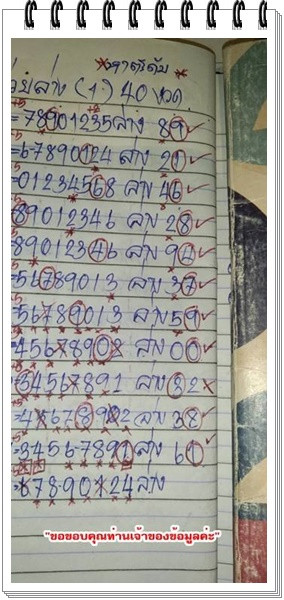 * ตารดับ *
วิ่งล่าง (1.) 40 งวด
= 78901235 ล่าง 89 ✓
= 67890124 ล่าง 20 ✓
= 01234568 ล่าง 46 ✓
89012346 ล่าง 28 ✓
89012346 ล่าง 94 ✓
= 56789013 ล่าง 37 ✓
56789013 ล่าง 59 ✓
= 45678902 ล่าง 00 ✓
= 34567891 ล่าง 32 ×
= 45678902 ล่าง 38 ✓
= 34567891 ล่าง 61 ✓
= 67890124 ล่าง
"ขอขอบคุณท่านเจ้าของข้อมูลค่ะ"